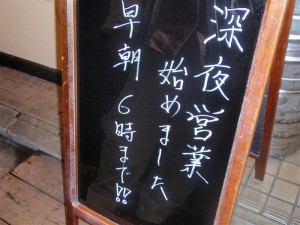 深夜営業
始めました
早朝 6時まで!!